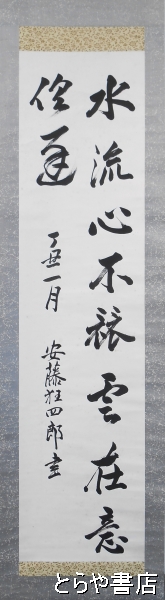 水流心不競雲在意
俱遲
丁丑一月 安藤狂四郎書
とらや書店